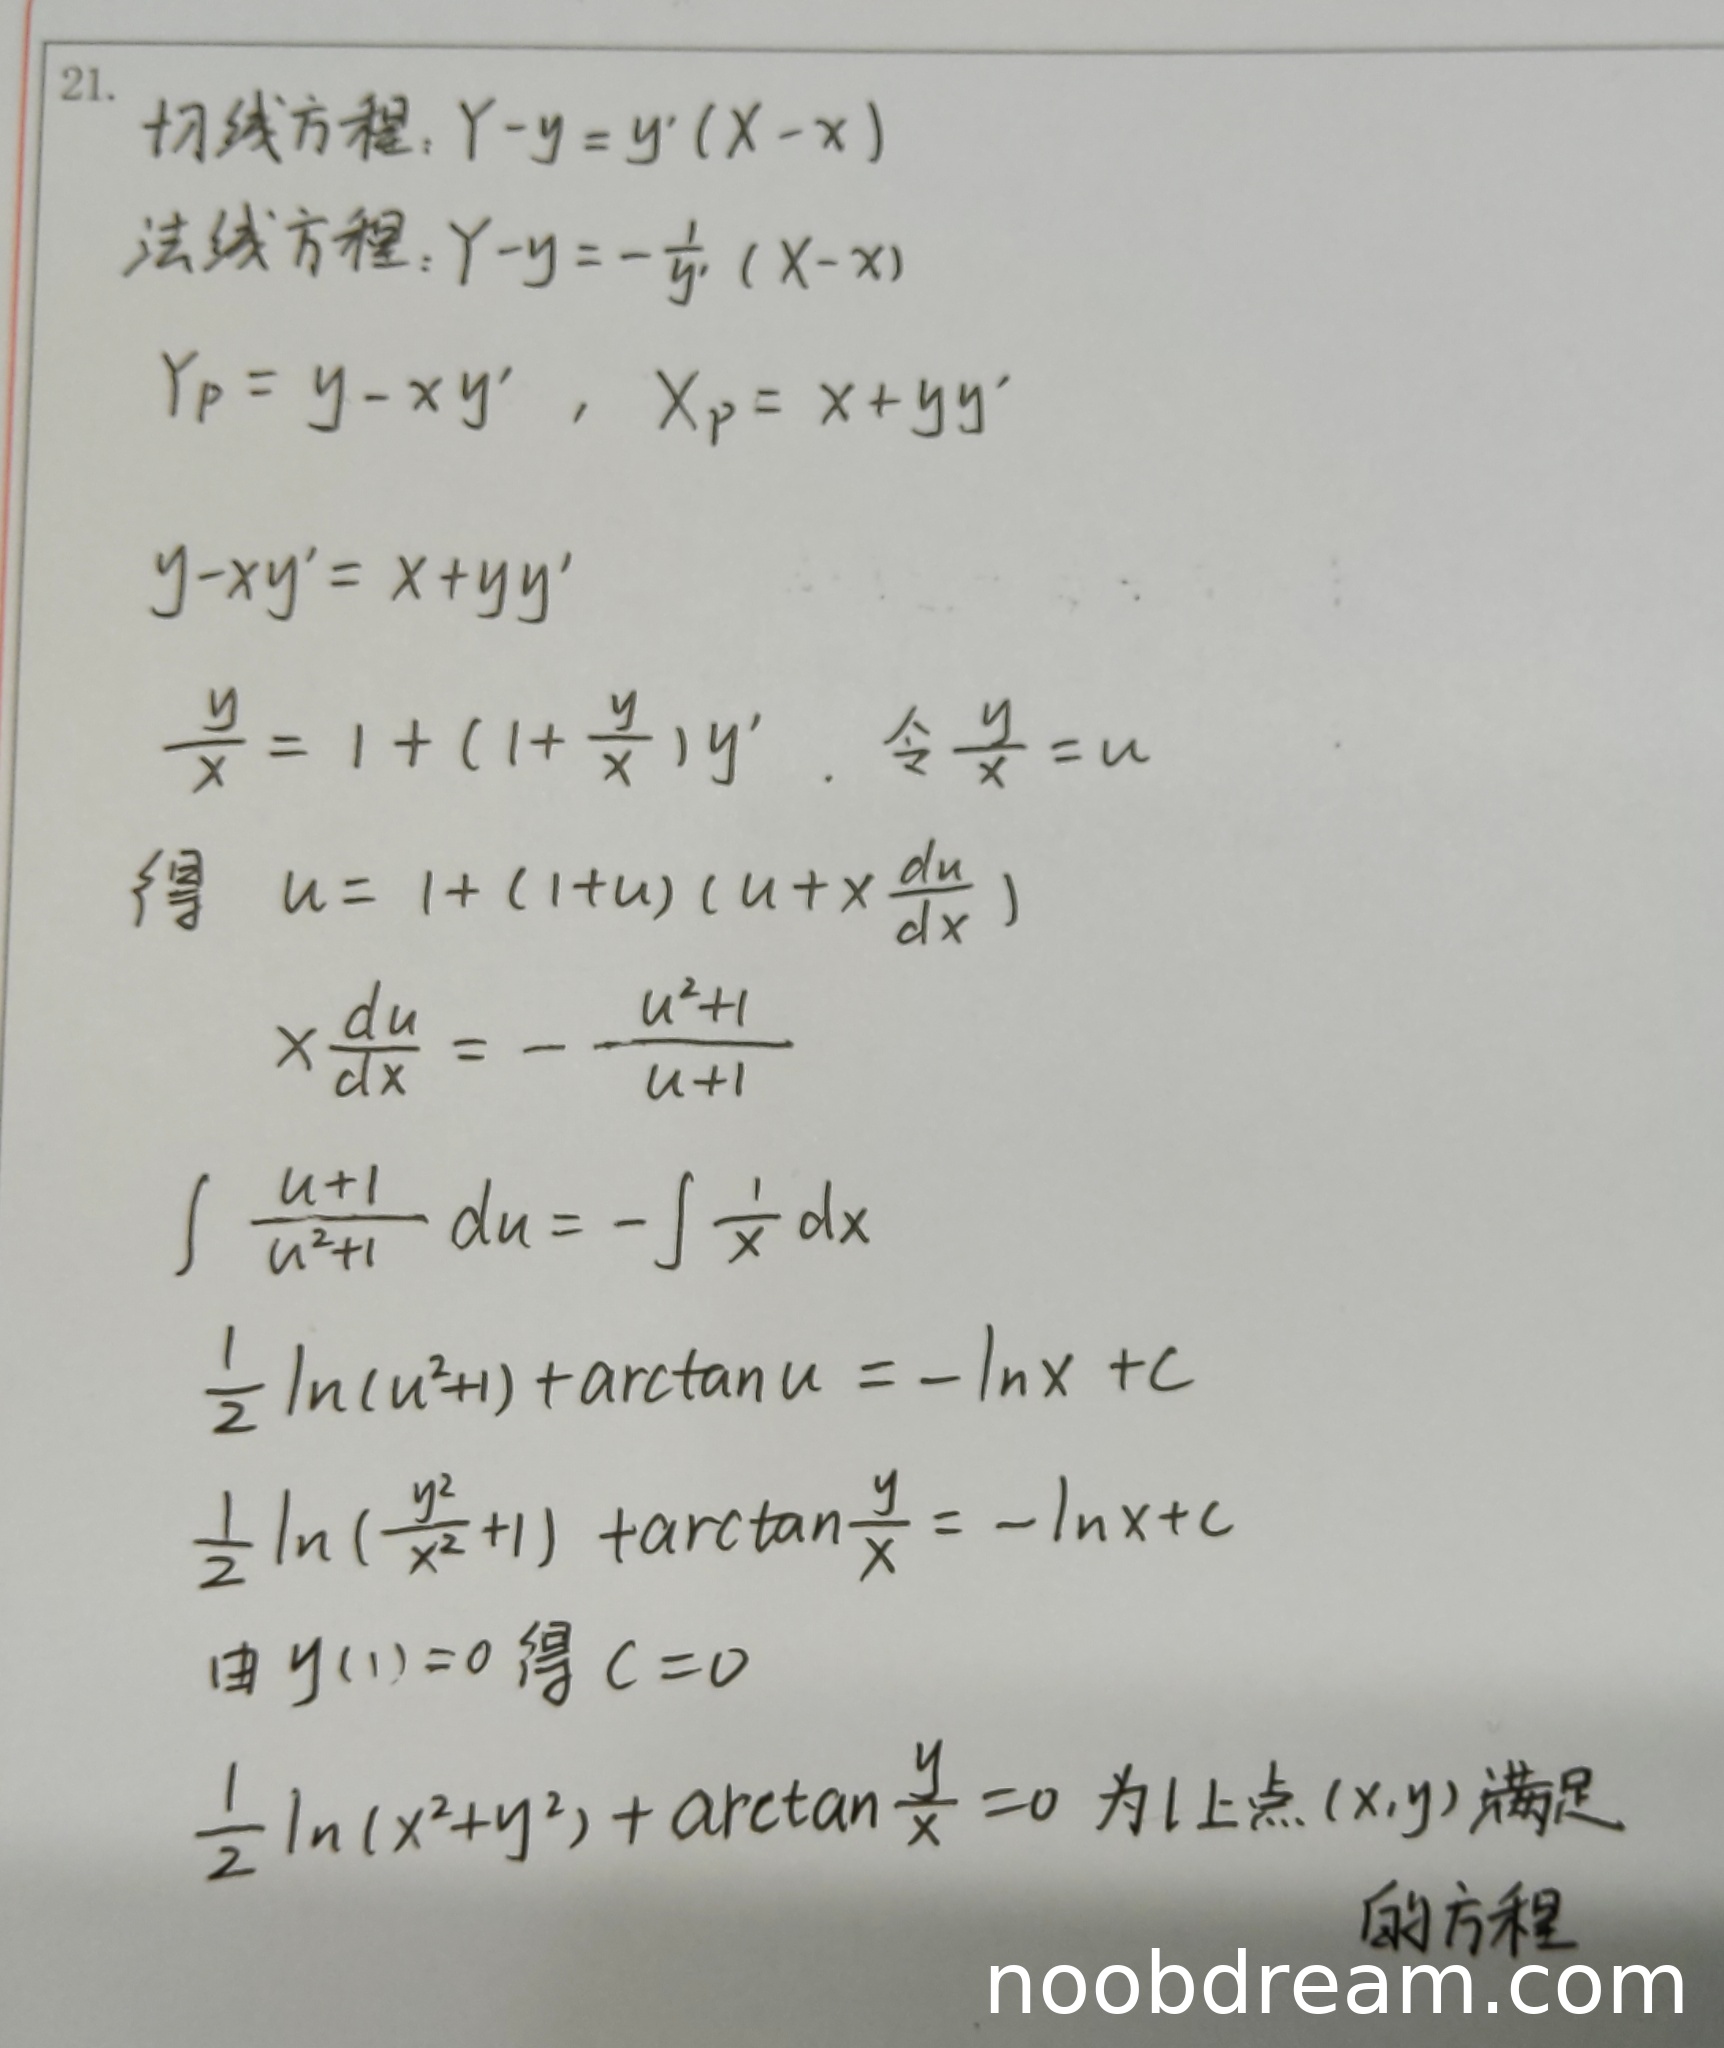 21.
切线方程: Y-y=y'(X-x)
法线方程: Y-y=-\frac{1}{y'}(X-x)
Y_P = y-xy' , X_P = x+yy'
y-xy'= x+yy'
\frac{y}{x} = 1+(1+\frac{y}{x})y' . 令\frac{y}{x}=u
得 u= 1+(1+u)(u+x\frac{du}{dx})
x\frac{du}{dx} = -\frac{u²+1}{u+1}
∫\frac{u+1}{u²+1}du=-∫\frac{1}{x}dx
\frac{1}{2}ln(u²+1)+arctanu = -lnx+C
\frac{1}{2}ln(\frac{y²}{x²}+1)+arctan\frac{y}{x}= -lnx+C
由 y(1)=0 得 C=0
\frac{1}{2}ln(x²+y²)+arctan\frac{y}{x}=0 为l上点(x,y)满足
的方程
noobdream.com